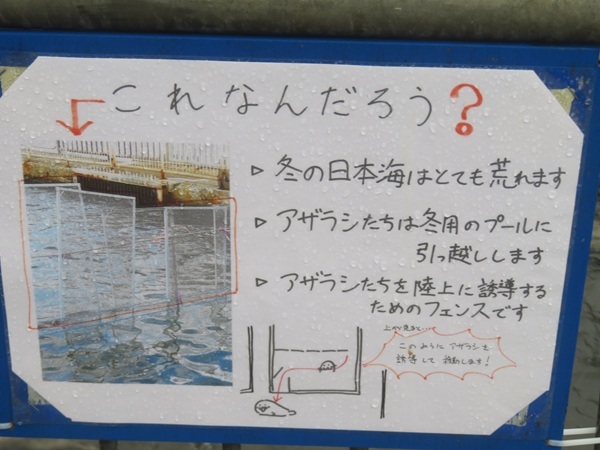 これなんだろう?
▷ 冬の日本海はとても荒れます
▷ アザラシたちは冬用のプールに
引っ越しします
▷ アザラシたちを陸上に誘導する
ためのフェンスです
上から見ると…
このようにアザラシを
誘導して移動します!